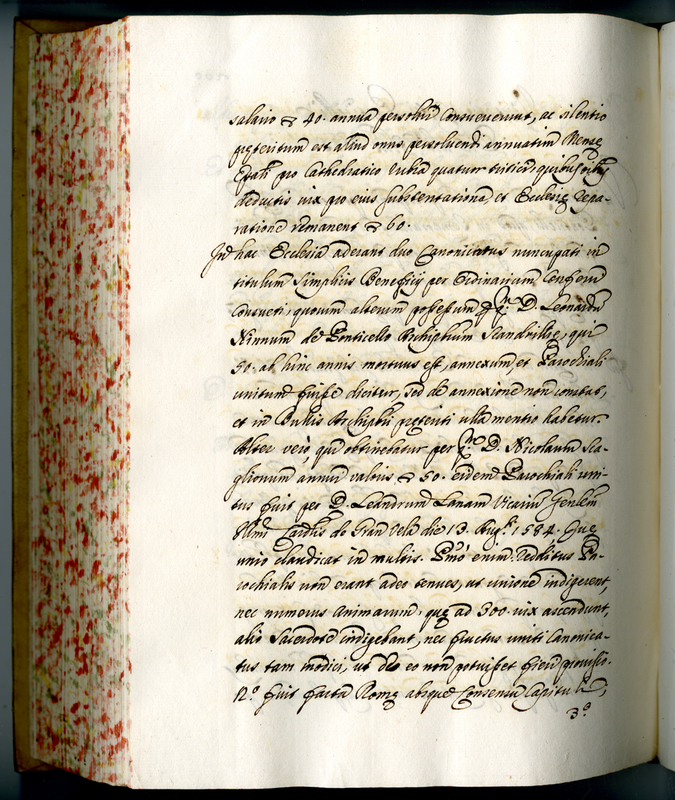 salario & 40. annua persolui consueuerunt, ac silentio
preteritum est aliud onus persoluendi annuatim Mense
Epali pro Cathedratico tumula quatuor triticis, quibus oibus
deductis uix pro eius substentatione, et Ecclesię repa-
ratione remanent & 60.
In hac Ecclesia aderant duo Canonicatus nuncupati in
titulum simplicis Beneficij per Ordinarium conferri
consueti, quorum alterum possessum p q. D. Leonardum
Ninnum de Ponticello Archiptum Scandrille, qui
50. ab hinc annis mortuus est, annexum, et Parochiali
unitum fuisse dicitur, sed de annexione non constat,
et in Bullis Archiptri pretenti ulla mentio habetur.
Alter vero, qui obtinebatur per q. D. Nicolaum Sca-
glionum annui valoris & 50. eidem Parochiali uni-
tus fuit per D. Leandrum Lanam Vicarium Gnlem
Illmi Cardlis de Gran vela die 13. Augti 1584. Que
unio claudicat in multis. Pmo enim redditus Pa-
rochialis non erant adeo tenues, ut unione indigerent,
nec numerus animarum que ad 300. uix ascendunt,
alio Sacerdote indigebant, nec fructus uniti Canonica-
tus tam modici, ut de eo non potuisset fieri prouisio.
2o. fuit facta Rome absque consensu Capituli,
3o